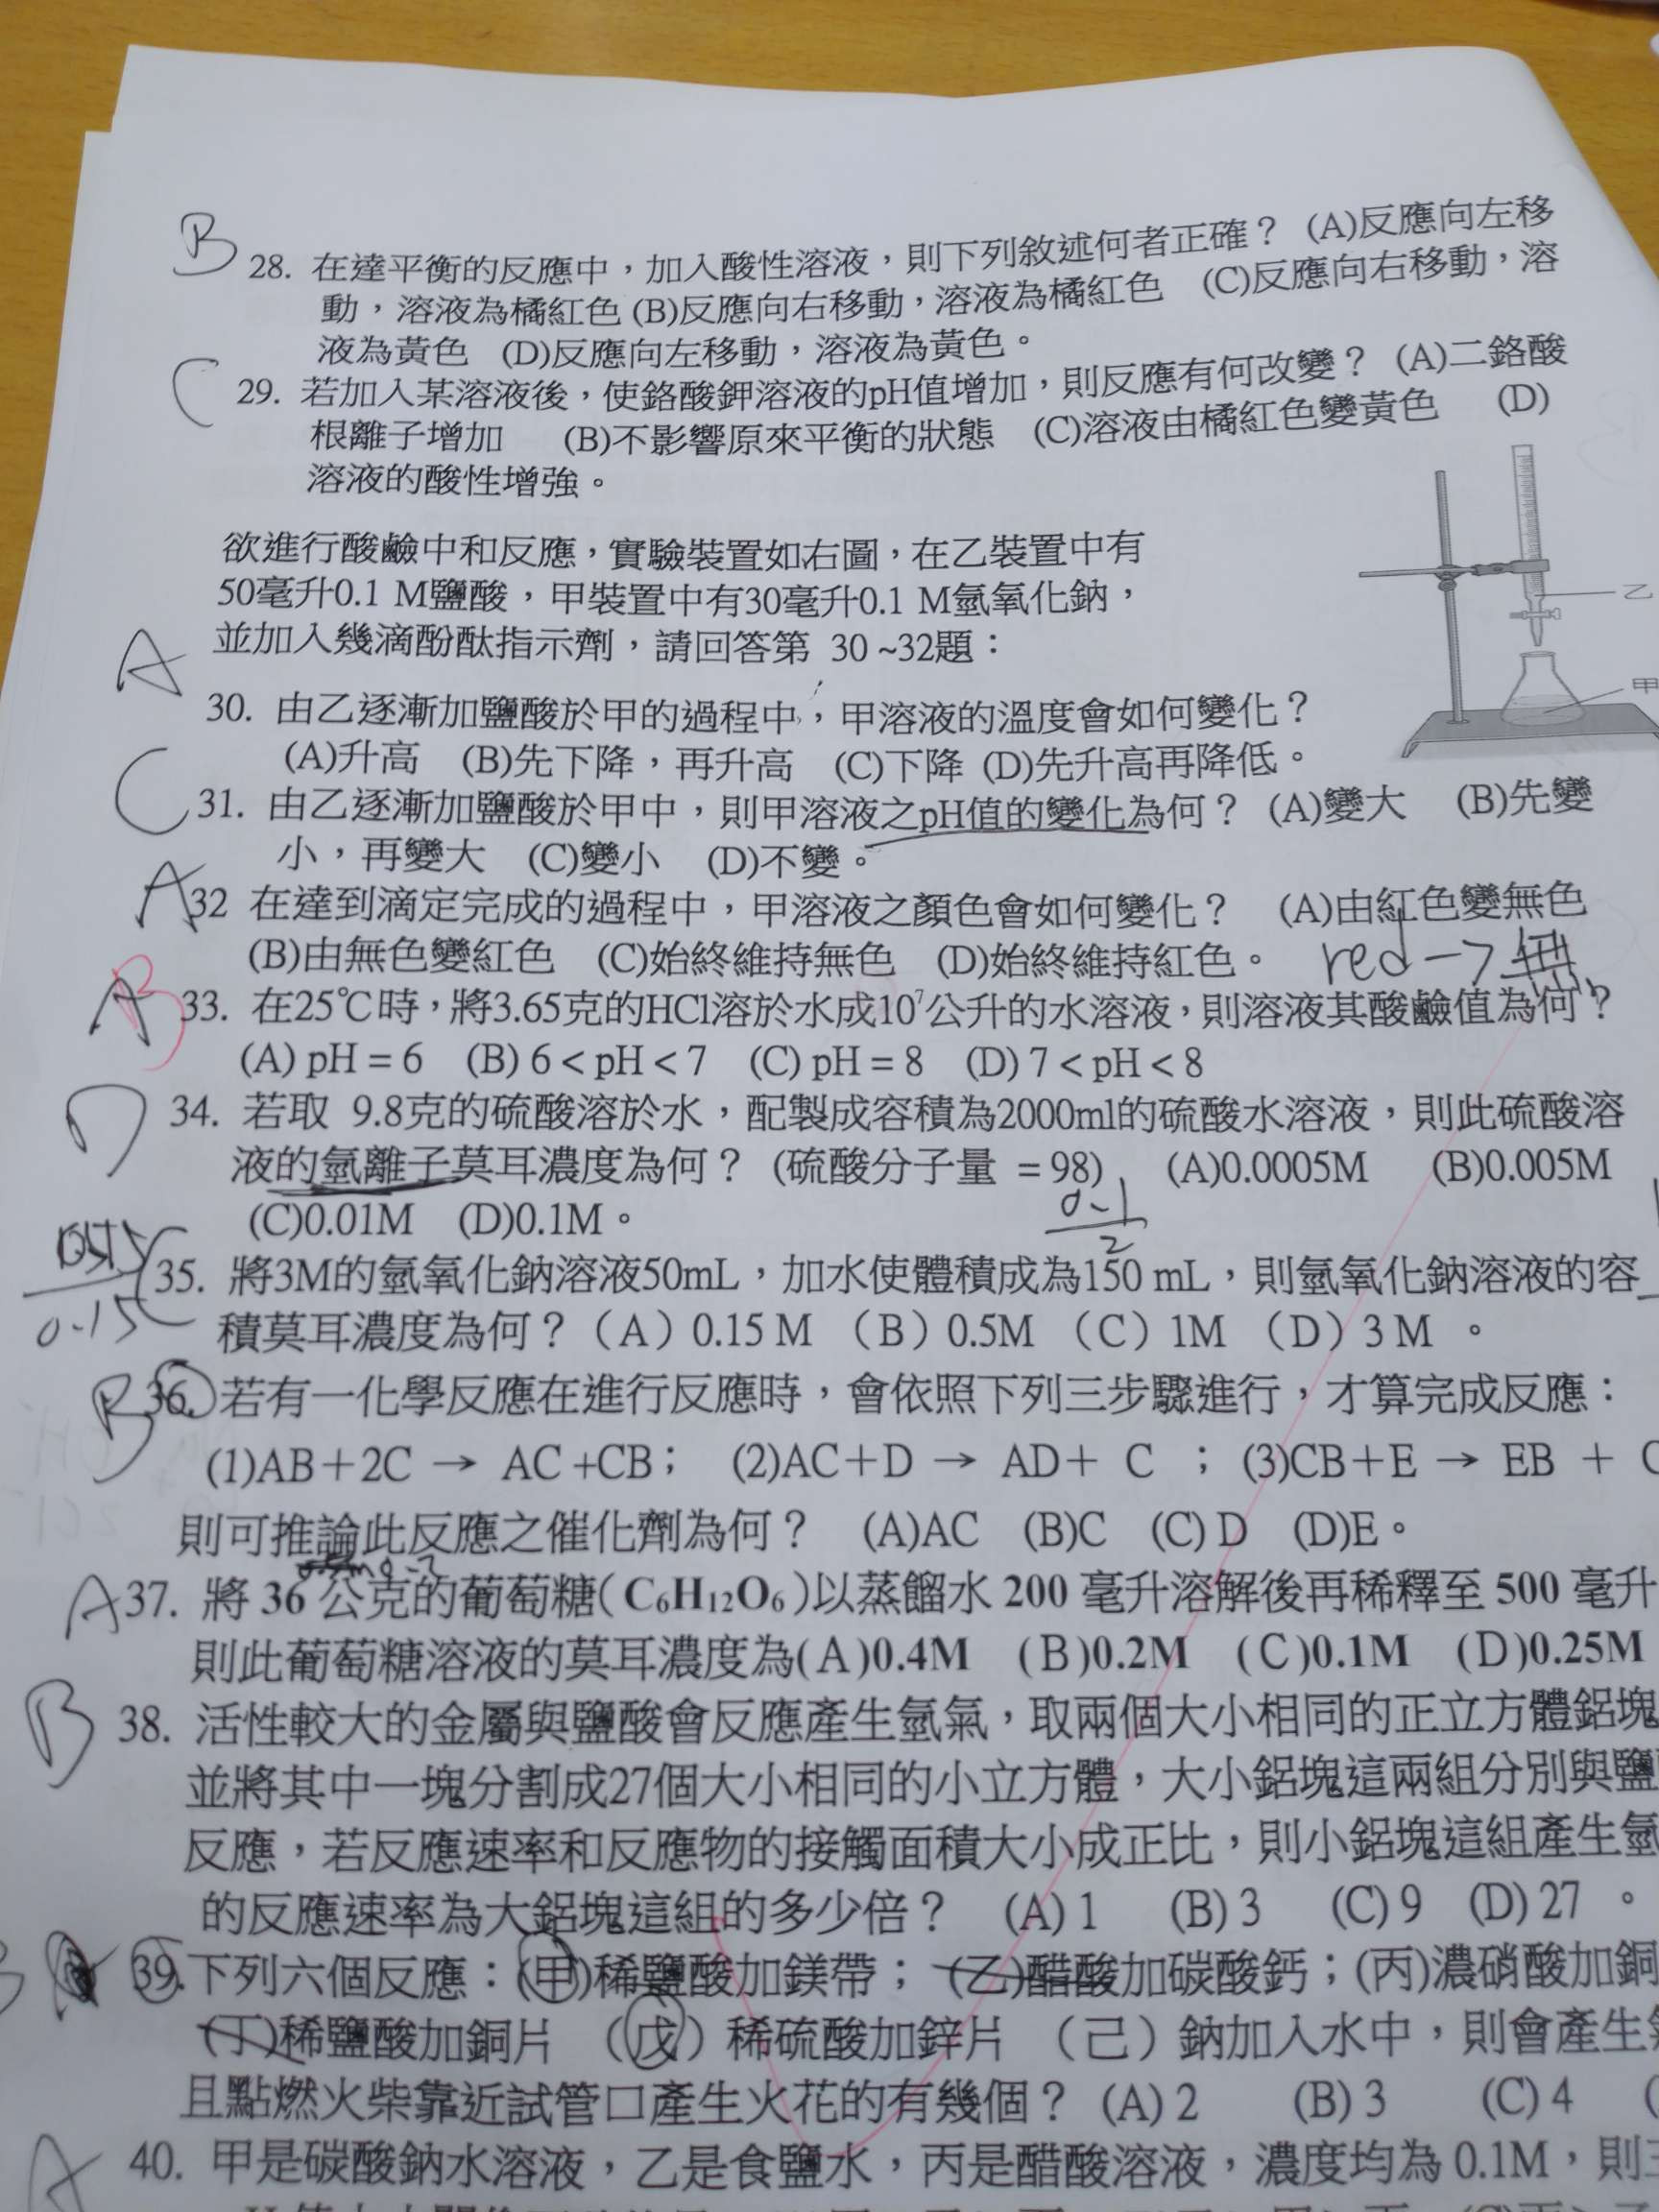 B 28. 在達平衡的反應中，加入酸性溶液，則下列敘述何者正確？ (A)反應向左移
動，溶液為橘紅色 (B)反應向右移動，溶液為橘紅色 (C)反應向右移動，溶
液為黃色 (D)反應向左移動，溶液為黃色。
C 29. 若加入某溶液後，使鉻酸鉀溶液的pH值增加，則反應有何改變？ (A)二鉻酸
根離子增加 (B)不影響原來平衡的狀態 (C)溶液由橘紅色變黃色 (D)
溶液的酸性增強。
欲進行酸鹼中和反應，實驗裝置如右圖，在乙裝置中有
50毫升0.1 M鹽酸，甲裝置中有30毫升0.1 M氫氧化鈉，
並加入幾滴酚酞指示劑，請回答第 30 ~32題：
乙
甲
A 30. 由乙逐漸加鹽酸於甲的過程中，甲溶液的溫度會如何變化？
(A)升高 (B)先下降，再升高 (C)下降 (D)先升高再降低。
C 31. 由乙逐漸加鹽酸於甲中，則甲溶液之pH值的變化為何？ (A)變大 (B)先變
小，再變大 (C)變小 (D)不變。
A 32 在達到滴定完成的過程中，甲溶液之顏色會如何變化？ (A)由紅色變無色
(B)由無色變紅色 (C)始終維持無色 (D)始終維持紅色。 red→無
A B 33. 在25℃時，將3.65克的HCl溶於水成10⁷公升的水溶液，則溶液其酸鹼值為何？
(A) pH = 6 (B) 6 < pH < 7 (C) pH = 8 (D) 7 < pH < 8
D 34. 若取 9.8克的硫酸溶於水，配製成容積為2000ml的硫酸水溶液，則此硫酸溶
液的氫離子莫耳濃度為何？ (硫酸分子量 = 98) (A)0.0005M (B)0.005M
(C)0.01M (D)0.1M。
0.1
2
0.15
C 35. 將3M的氫氧化鈉溶液50mL，加水使體積成為150 mL，則氫氧化鈉溶液的容
積莫耳濃度為何？（A）0.15 M （B）0.5M （C）1M （D）3 M 。
B 36. 若有一化學反應在進行反應時，會依照下列三步驟進行，才算完成反應：
(1)AB＋2C → AC +CB； (2)AC＋D → AD＋ C ；(3)CB＋E → EB + C
則可推論此反應之催化劑為何？ (A)AC (B)C (C) D (D)E。
A 37. 將 36 公克的葡萄糖( C₆H₁₂O₆ )以蒸餾水 200 毫升溶解後再稀釋至 500 毫升
則此葡萄糖溶液的莫耳濃度為(A)0.4M (B)0.2M (C)0.1M (D)0.25M
B 38. 活性較大的金屬與鹽酸會反應產生氫氣，取兩個大小相同的正立方體鋁塊
並將其中一塊分割成27個大小相同的小立方體，大小鋁塊這兩組分別與鹽
反應，若反應速率和反應物的接觸面積大小成正比，則小鋁塊這組產生氫
的反應速率為大鋁塊這組的多少倍？ (A) 1 (B) 3 (C) 9 (D) 27 。
B 39. 下列六個反應：(甲)稀鹽酸加鎂帶；(乙)醋酸加碳酸鈣；(丙)濃硝酸加銅
(丁)稀鹽酸加銅片 （戊）稀硫酸加鋅片 （己）鈉加入水中，則會產生
且點燃火柴靠近試管口產生火花的有幾個？ (A) 2 (B) 3 (C) 4
A 40. 甲是碳酸鈉水溶液，乙是食鹽水，丙是醋酸溶液，濃度均為 0.1M，則三